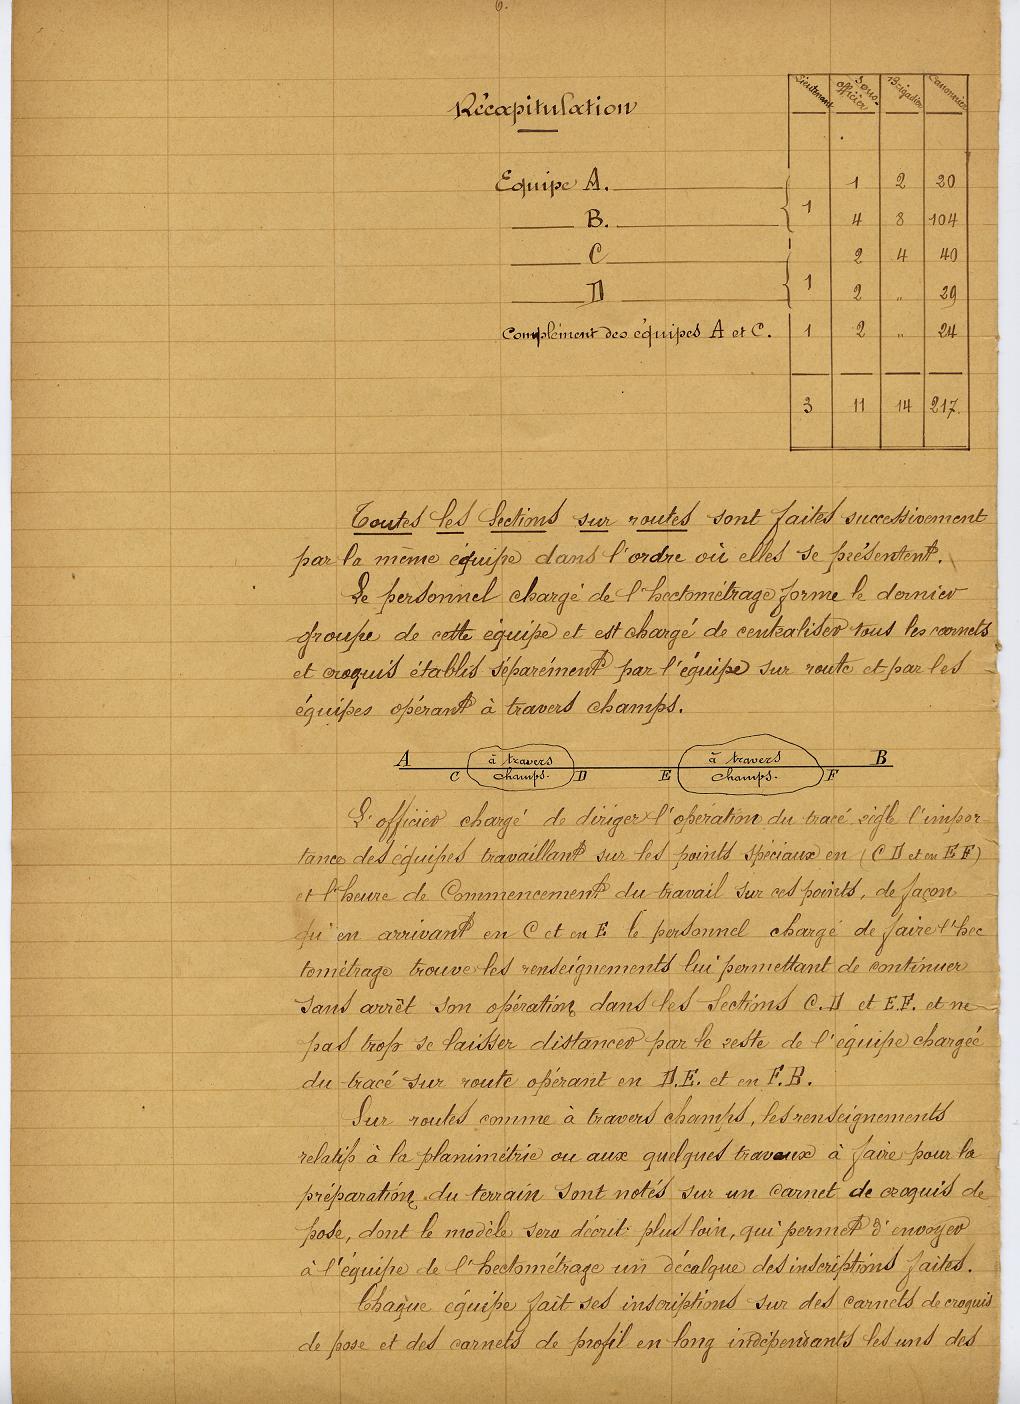 6.
Lieutenant Sous-officier Brigadier Canonnier
Récapitulation
Equipe A. 1 2 20
B. 1 4 8 104
C 2 4 40
D 1 2 " 29
Complément des équipes A et C. 1 2 " 24
3 11 14 217.
Toutes les Sections sur routes sont faites successivement
par la même équipe dans l'ordre où elles se présentent.
Le personnel chargé de l'hectométrage forme le dernier
groupe de cette équipe et est chargé de centraliser tous les carnets
et croquis établis séparément par l'équipe sur route et par les
équipes opérant à travers champs.
A à travers à travers B
C champs. D E champs. F
L'officier chargé de diriger l'opération du tracé règle l'impor-
tance des équipes travaillant sur les points spéciaux en (C D et en E F)
et l'heure de Commencement du travail sur ces points, de façon
qu'en arrivant en C et en E le personnel chargé de faire l'hec
tométrage trouve les renseignements lui permettant de continuer
sans arrêt son opération dans les Sections C.D et E.F. et ne
pas trop se laisser distancer par le reste de l'équipe chargée
du tracé sur route opérant en D.E. et en F.B.
Sur routes comme à travers champs, les renseignements
relatifs à la planimétrie ou aux quelques travaux à faire pour la
préparation du terrain sont notés sur un carnet de croquis de
pose, dont le modèle sera décrit plus loin, qui permet d'envoyer
à l'équipe de l'hectométrage un décalque des inscriptions faites.
Chaque équipe fait ses inscriptions sur des carnets de croquis
de pose et des carnets de profil en long indépendants les uns des